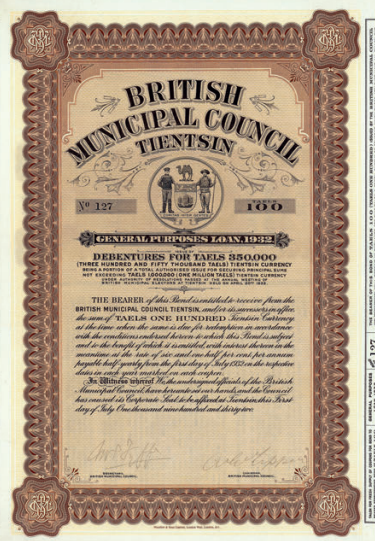 BRITISH
MUNICIPAL COUNCIL
TIENTSIN
Nº 127
TAELS
100
GENERAL PURPOSES LOAN, 1932
ISSUE OF
DEBENTURES FOR TAELS 350.000
(THREE HUNDRED AND FIFTY THOUSAND TAELS) TIENTSIN CURRENCY
BEING A PORTION OF A TOTAL AUTHORISED ISSUE FOR SECURING PRINCIPAL SUMS
NOT EXCEEDING TAELS 1,000,000 (ONE MILLION TAELS) TIENTSIN CURRENCY
UNDER AUTHORITY OF RESOLUTIONS PASSED AT THE ANNUAL MEETING OF
BRITISH MUNICIPAL ELECTORS AT TIENTSIN HELD ON APRIL 20TH 1932.
THE BEARER of this Bond is entitled to receive from the
BRITISH MUNICIPAL COUNCIL TIENTSIN, and/or its successors in office
the sum of TAELS ONE HUNDRED Tientsin Currency
at the time when the same is due for redemption in accordance
with the conditions entered hereon to which this Bond is subject
and to the benefit of which it is entitled, and interest thereon in the
meantime at the rate of six and one half per cent per annum
payable half-yearly from the first day of July 1932 on the respective
dates in each year marked on each coupon.
In Witness whereof We, the undersigned officials of the British
Municipal Council, have hereunto set our hands, and the Council
has caused its Corporate Seal to be affixed at Tientsin, this First
day of July One thousand nine hundred and thirty two
SECRETARY,
BRITISH MUNICIPAL COUNCIL
CHAIRMAN,
BRITISH MUNICIPAL COUNCIL
THE BEARER OF THIS BOND OF TAELS 100 (TAELS ONE HUNDRED) ISSUED BY THE BRITISH MUNICIPAL COUNCIL
Nº 127
GENERAL PURPOSES